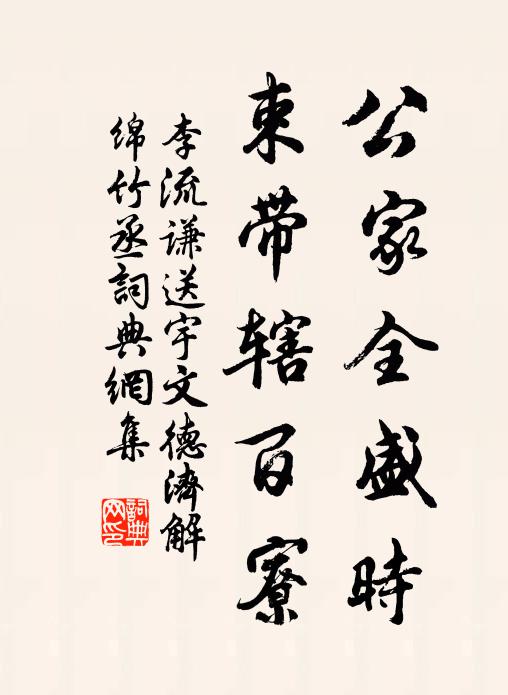 公家全盛時
束带辖百寮
李流谦送宇文德濟解
綿竹丞詞典網集
詞典网印